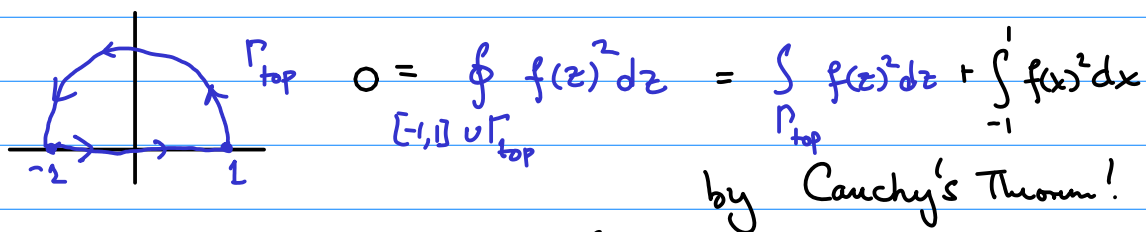 Γ_top 0 = ∮_{[-1,1] ∪ Γ_top} f(z)² dz = ∫_{Γ_top} f(z)² dz + ∫_{-1}^{1} f(x)² dx
-1 1
by Cauchy's Theorem!